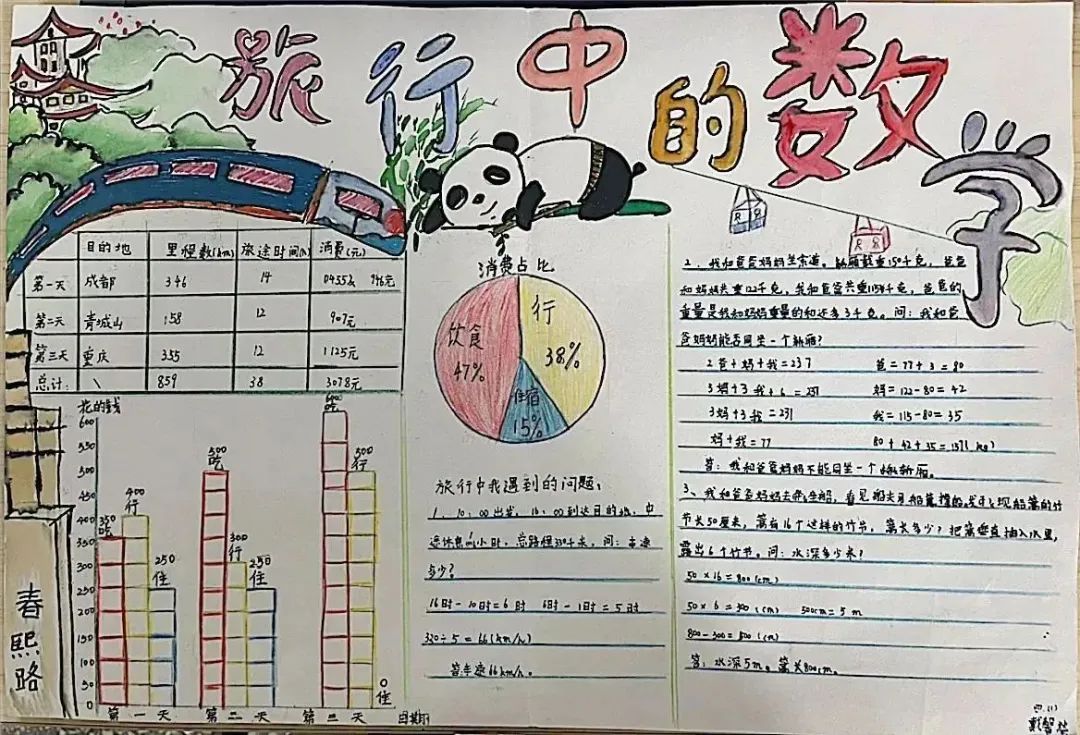 旅行中的数学
目的地 里程数(km) 旅途时间(h) 消费(元)
第一天 成都 346 14 946元
第二天 青城山 158 12 907元
第三天 重庆 355 12 1125元
总计: \ 859 38 3078元
花的钱
600
550
500
450
400
350
300
250
200
150
100
50
0
350 吃
400 行
250 住
500 吃
300 行
250 住
600 吃
500 行
0 住
第一天 第二天 第三天 日期
春熙路
消费占比
饮食 47%
行 38%
住宿 15%
旅行中我遇到的问题:
1、10:00出发,16:00到达目的地,中
途休息1小时,总路程330千米,问:车速
多少?
16时-10时=6时 6时-1时=5时
330÷5=66(km/h)
答:车速66km/h。
2、我和爸爸妈妈坐索道。轿厢载重150千克,爸爸
和妈妈共重122千克,我和爸爸共重115千克,爸爸的
重量是我和妈妈重量的和还多3千克。问:我和爸
爸妈妈能否同坐一个轿厢?
2爸+妈+我=237 爸=77+3=80
3妈+3我+6=237 妈=122-80=42
3妈+3我=231 我=115-80=35
妈+我=77 80+42+35=157(kg)
答:我和爸爸妈妈不能同坐一个轿厢。
3、我和爸爸妈妈去坐船,看见船夫用船篙撑船,发现船篙的竹
节长50厘米,篙有16个这样的竹节,篙长多少?把篙垂直插入水里,
露出6个竹节。问:水深多少米?
50×16=800(cm)
50×6=300(cm) 500cm=5m
800-300=500(cm)
答:水深5m。篙长800cm。